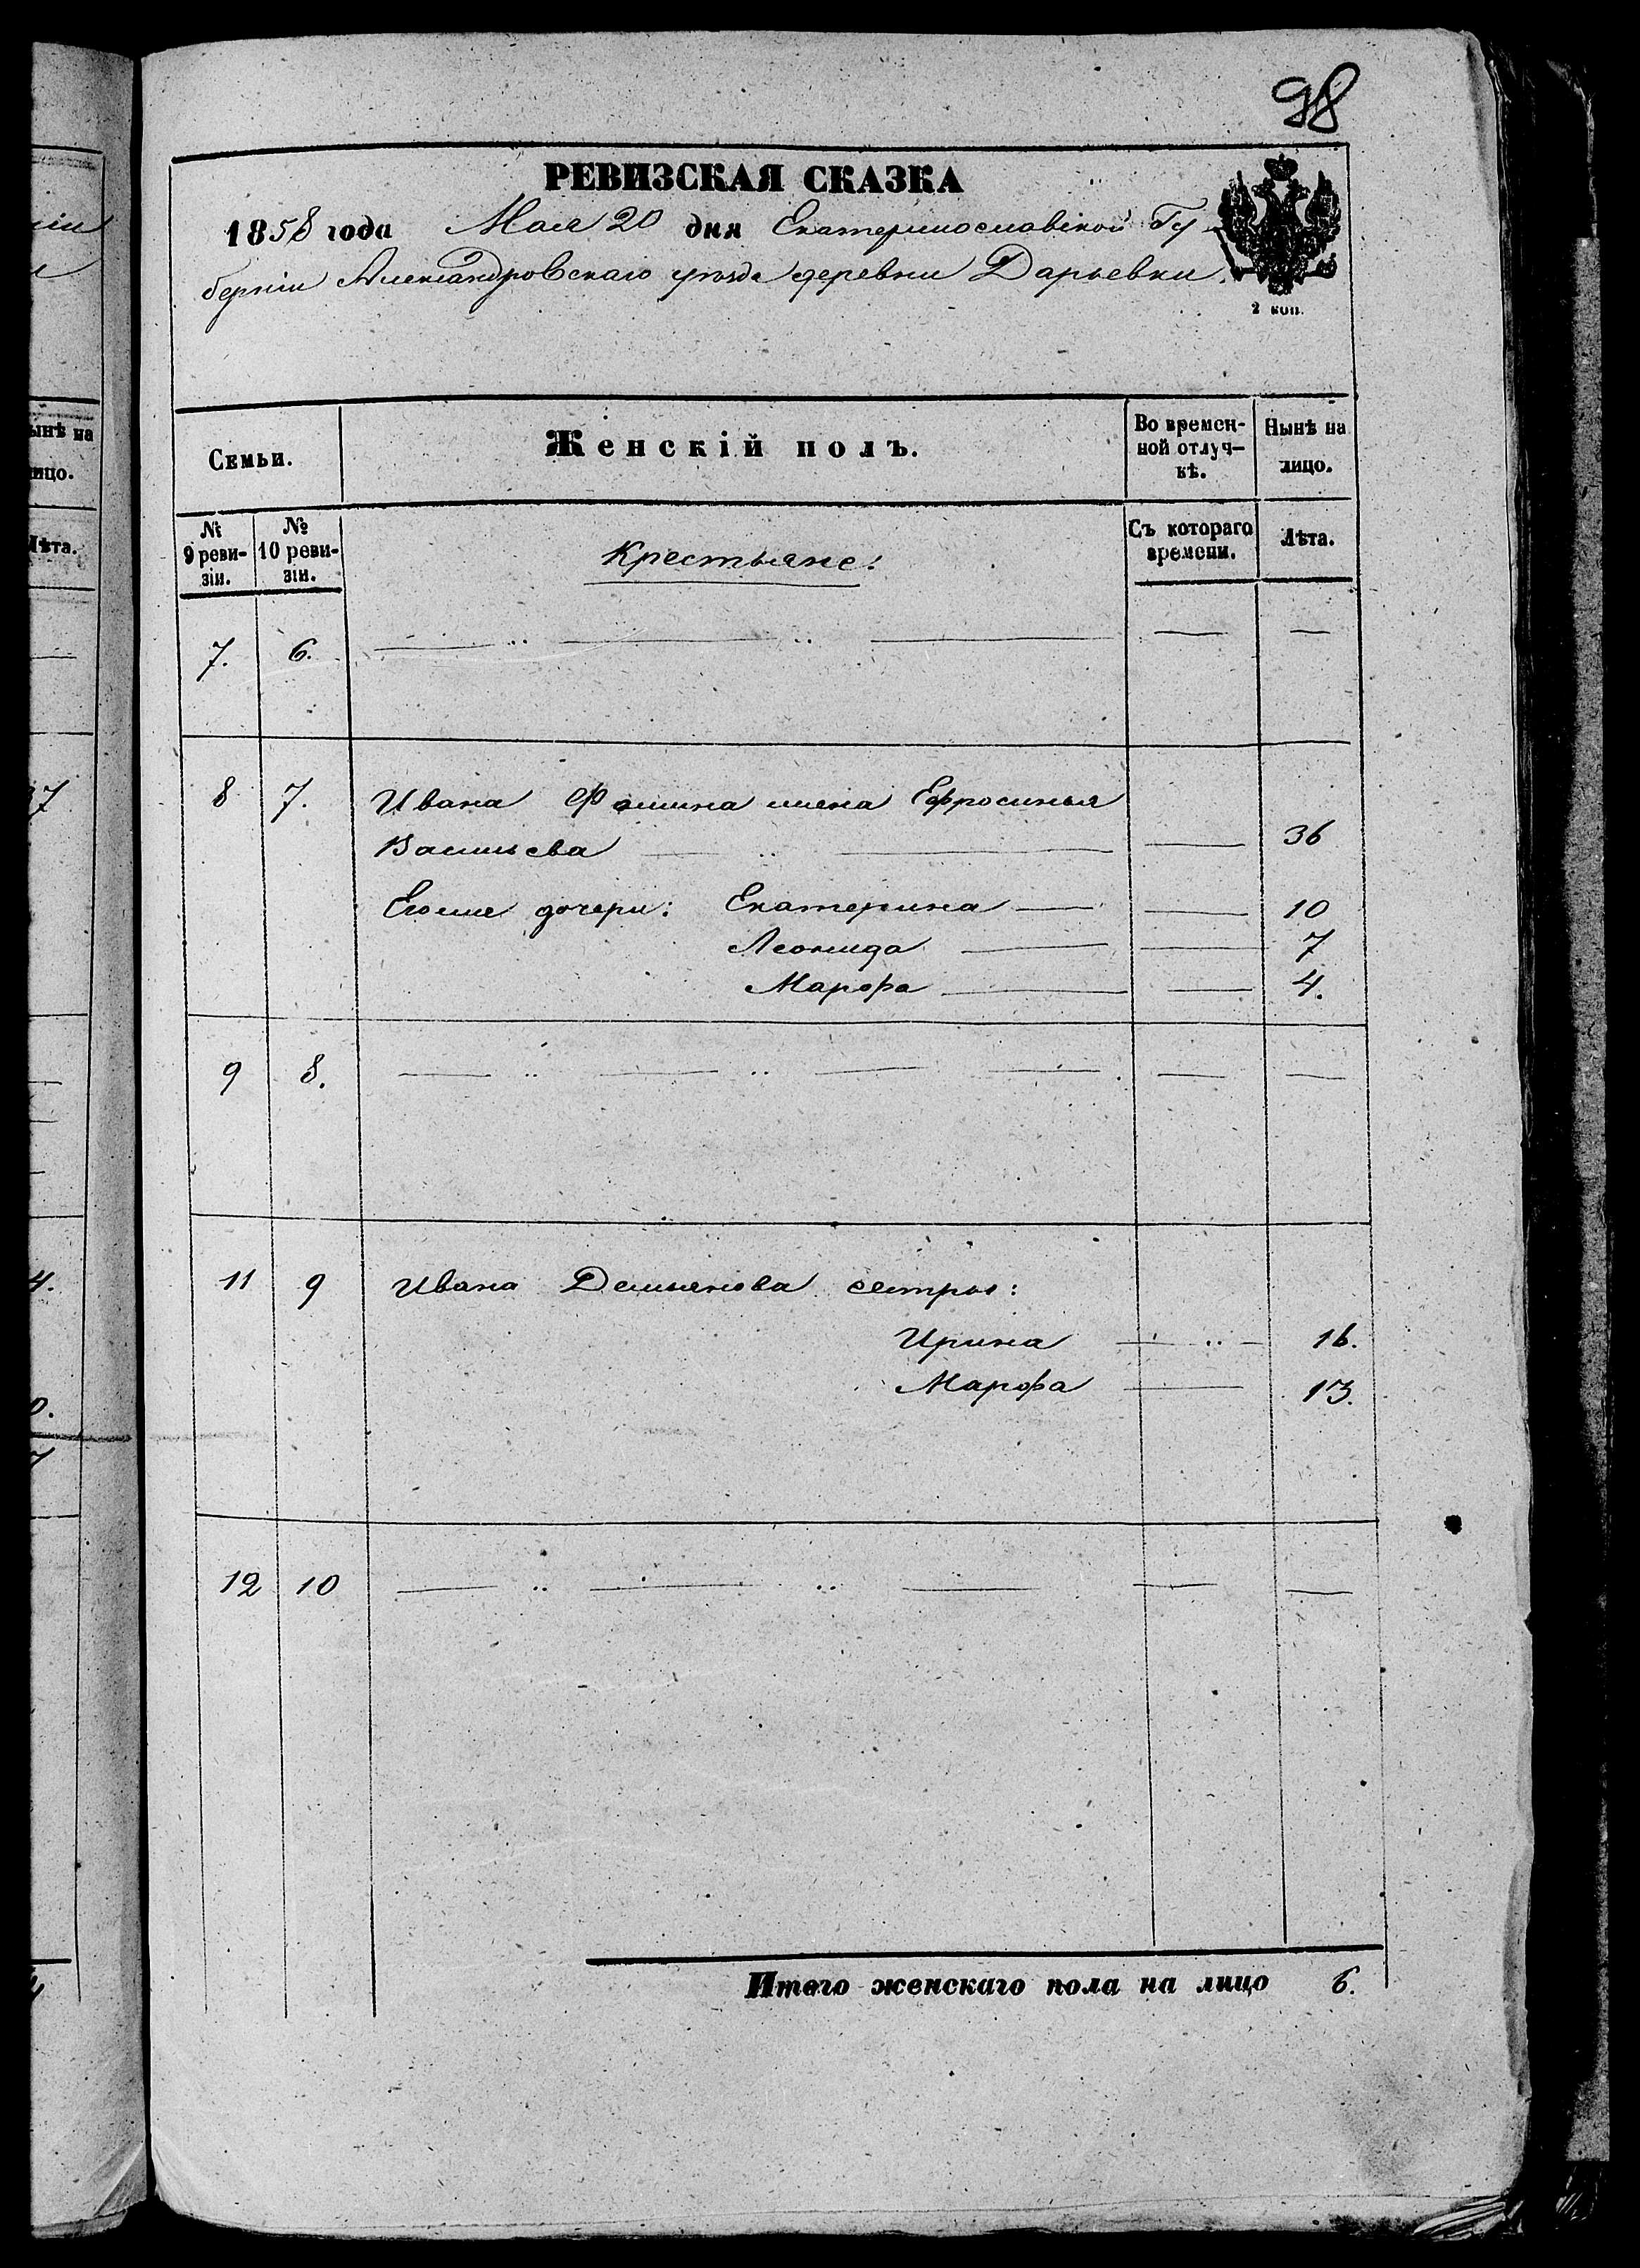 98
РЕВИЗСКАЯ СКАЗКА
1858 года Мая 20 дня Екатеринославской Гу-
берніи Александровскаго уѣзда деревни Дарьевки.
2 коп.
Семьи. Женскій полъ. Во времен-ной отлуч-кѣ. Нынѣ на лицо.
№ 9 реви-зіи. № 10 реви-зіи. Крестьяне: Съ котораго времени. Лѣта.
7. 6.
8 7. Ивана Фомина жена Ефросинья
Васильева 36
Егоже дочери: Екатерина 10
Леонида 7
Марфа 4.
9 8.
11 9 Ивана Демьянова сестры:
Ирина 16.
Марфа 13.
12 10
Итого женскаго пола на лицо 6.